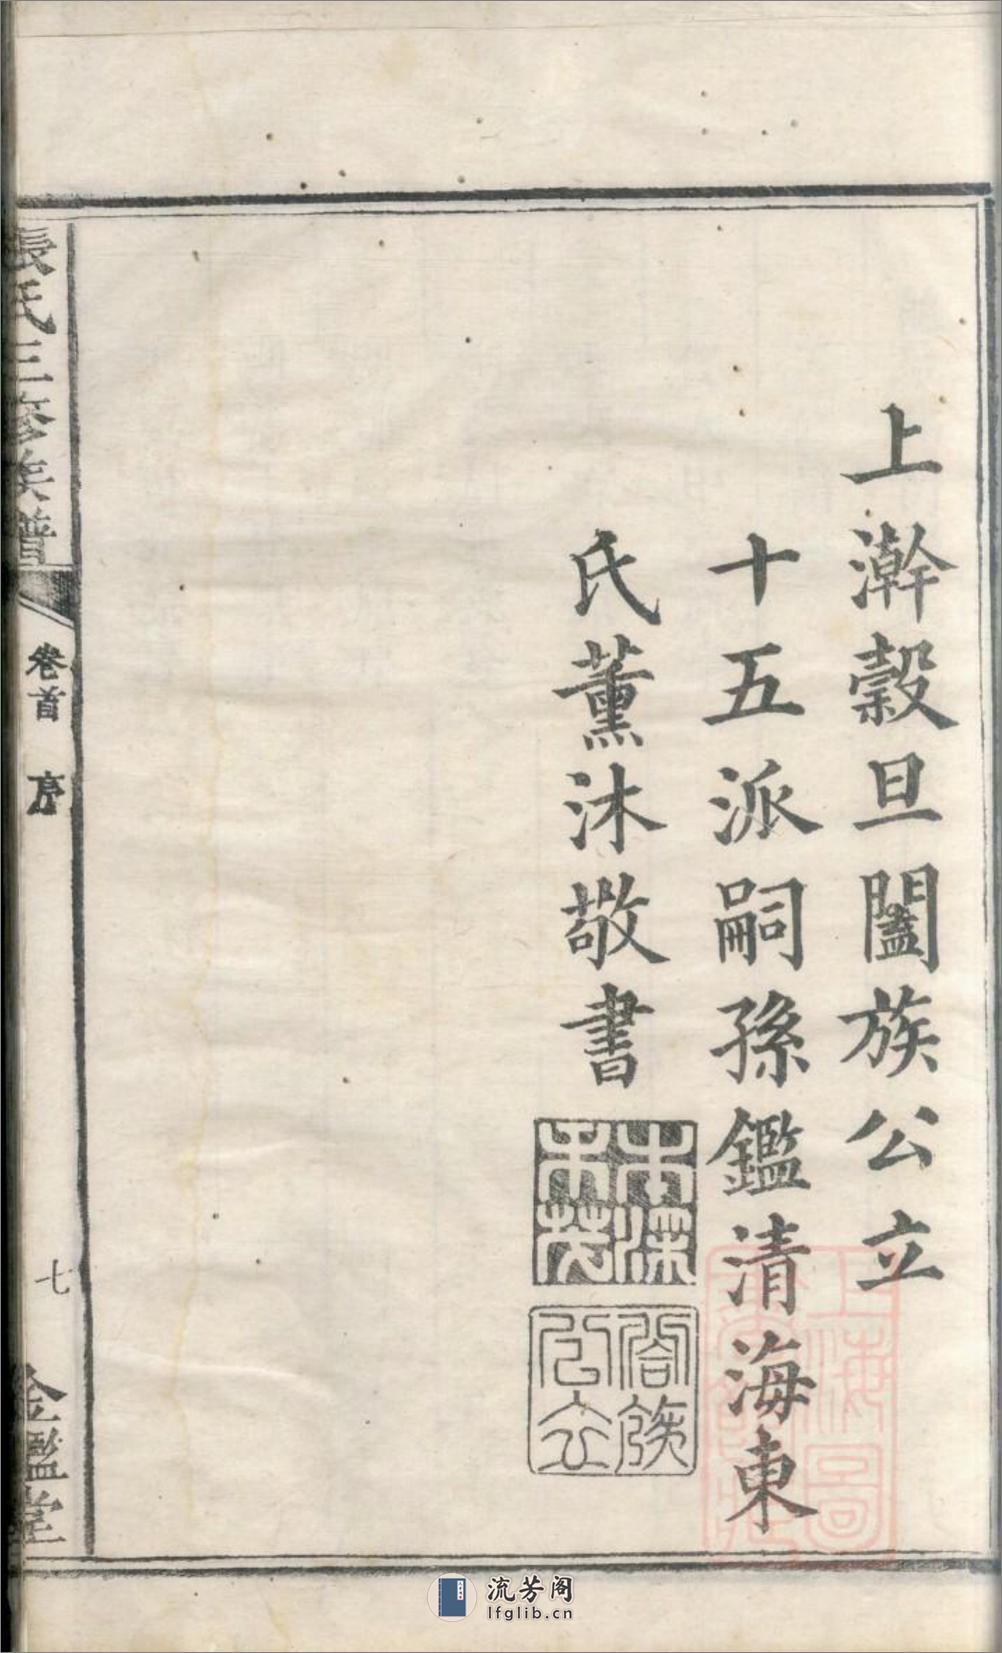 上澣穀旦闔族公立
十五派嗣孫鑑清海東
氏薰沐敬書
木深
禾茂
闔族
公立
上海圖
張氏三修族譜
卷首
序
七
金鑑堂
流芳阁
lfglib.cn